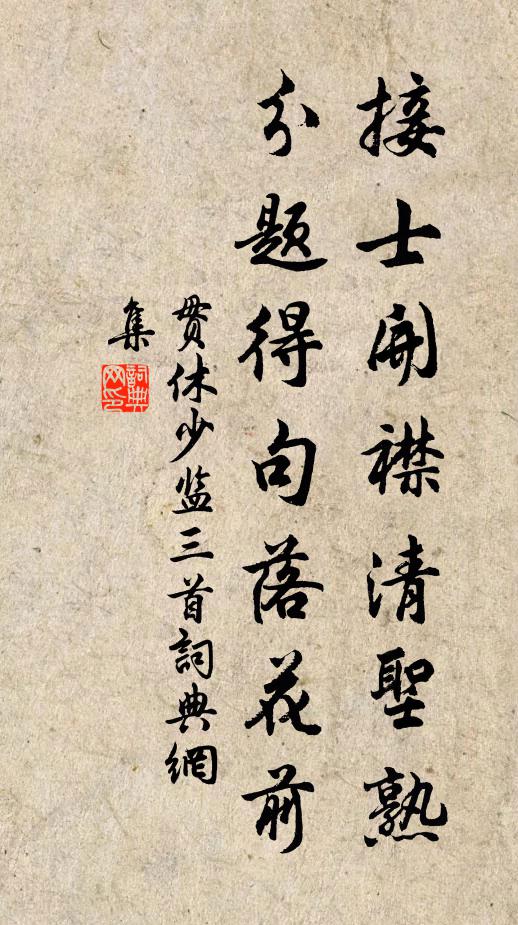 接士開襟清聖熟
分題得句落花前
貫休少监三首詞典網
集
詞典
网印